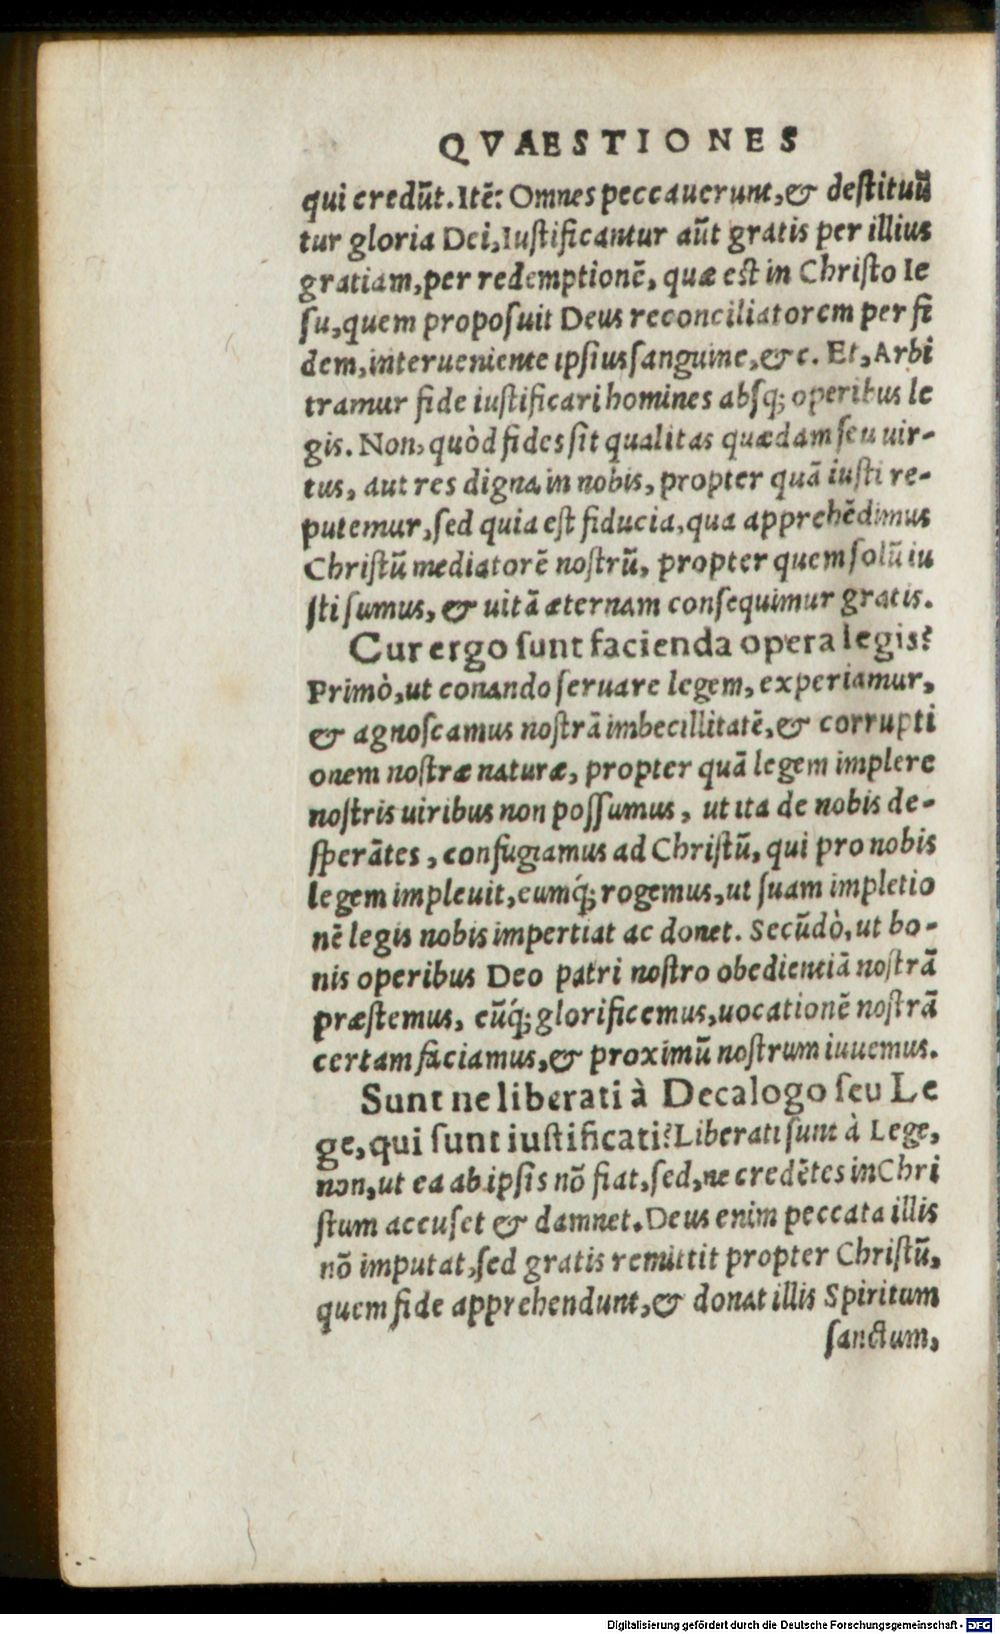 QVAESTIONES
qui credũt. Itẽ: Omnes peccauerunt, & destituũ
tur gloria Dei, Iustificantur aũt gratis per illius
gratiam, per redemptionẽ, quæ est in Christo Ie
su, quem proposuit Deus reconciliatorem per fi
dem, interueniente ipsius sanguine, &c. Et, Arbi
tramur fide iustificari homines absq; operibus le
gis. Non, quòd fides sit qualitas quædam seu uir-
tus, aut res digna in nobis, propter quã iusti re-
putemur, sed quia est fiducia, qua apprehẽdimus
Christũ mediatorẽ nostrũ, propter quem solũ iu
sti sumus, & uitã æternam consequimur gratis.
Cur ergo sunt facienda opera legis?
Primò, ut conando seruare legem, experiamur,
& agnoscamus nostrã imbecillitatẽ, & corrupti
onem nostræ naturæ, propter quã legem implere
nostris uiribus non possumus, ut ita de nobis de-
sperãtes, confugiamus ad Christũ, qui pro nobis
legem impleuit, eumq́; rogemus, ut suam impletio
nẽ legis nobis impertiat ac donet. Secũdò, ut bo-
nis operibus Deo patri nostro obedientiã nostrã
præstemus, eũq́; glorificemus, uocationẽ nostrã
certam faciamus, & proximũ nostrum iuuemus.
Sunt ne liberati à Decalogo seu Le
ge, qui sunt iustificati? Liberati sunt à Lege,
non, ut ea ab ipsis nõ fiat, sed, ne credẽtes in Chri
stum accuset & damnet. Deus enim peccata illis
nõ imputat, sed gratis remittit propter Christũ,
quem fide apprehendunt, & donat illis Spiritum
sanctum,
Digitalisierung gefördert durch die Deutsche Forschungsgemeinschaft - DFG